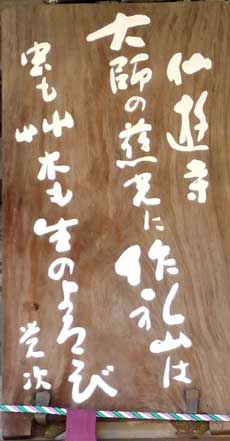 仙遊寺
大師の慈光に作礼山は
虫も草木も生のよろこび
覚次